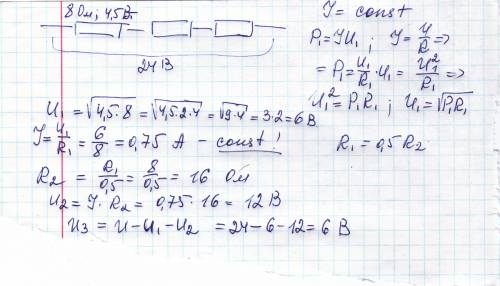 8 Ом; 4,5 Вт
24 В
I = const
P₁ = IU₁ ; I = U/R =>
= P₁ = U₁/R₁ · U₁ = U₁²/R₁ =>
U₁² = P₁R₁ ; U₁ = √P₁R₁
R₁ = 0,5 R₂
U₁ = √4,5·8 = √4,5·2·4 = √9·4 = 3·2 = 6 В
I = U₁/R₁ = 6/8 = 0,75 А – const!
R₂ = R₁/0,5 = 8/0,5 = 16 Ом
U₂ = I · R₂ = 0,75 · 16 = 12 В
U₃ = U – U₁ – U₂ = 24 – 6 – 12 = 6 В